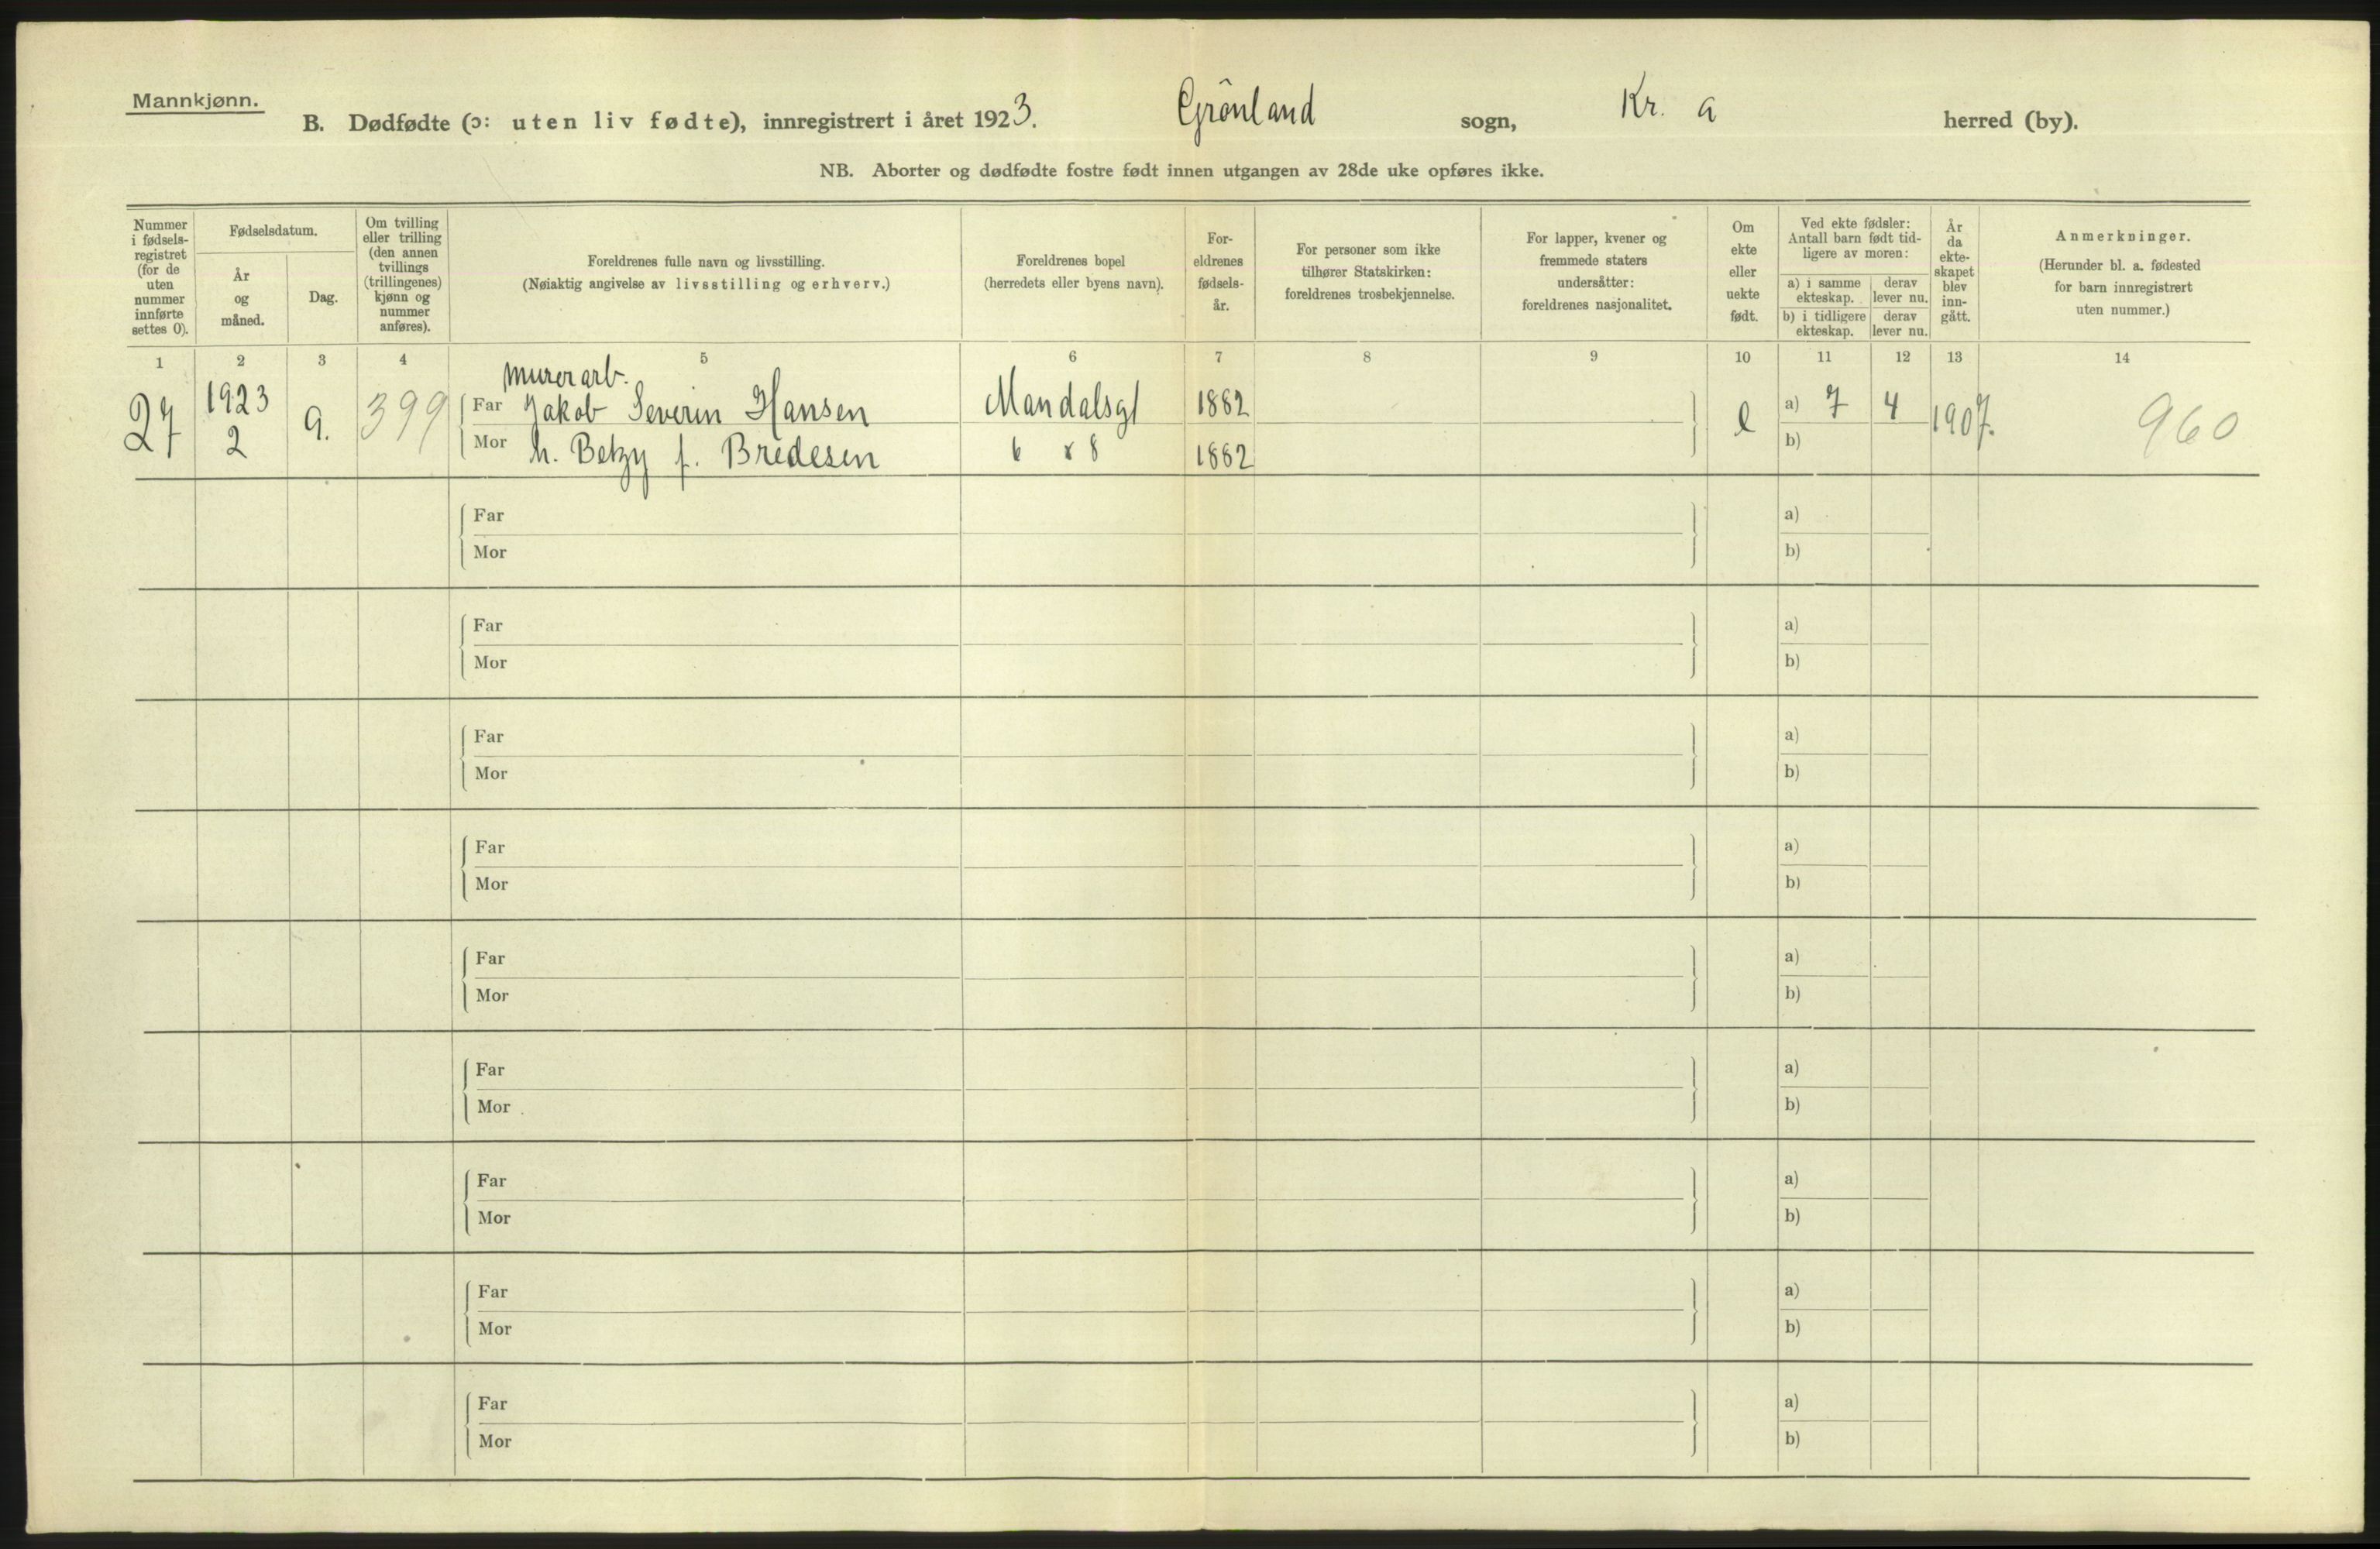 Mannkjønn.
B. Dødfødte (ɔ: uten liv fødte), innregistrert i året 1923. Grönland sogn, Kr. a herred (by).
NB. Aborter og dødfødte fostre født innen utgangen av 28de uke opføres ikke.
Nummer i fødsels- registret (for de uten nummer innførte settes 0).
Fødselsdatum.
År og måned.
Dag.
Om tvilling eller trilling (den annen tvillings (trillingenes) kjønn og nummer anføres).
Foreldrenes fulle navn og livsstilling.
(Nøiaktig angivelse av livsstilling og erhverv.)
Foreldrenes bopel
(herredets eller byens navn).
For- eldrenes fødsels- år.
For personer som ikke
tilhører Statskirken:
foreldrenes trosbekjennelse.
For lapper, kvener og
fremmede staters
undersåtter:
foreldrenes nasjonalitet.
Om ekte eller uekte født.
Ved ekte fødsler:
Antall barn født tid-
ligere av moren:
a) i samme ekteskap. derav lever nu.
b) i tidligere ekteskap. derav lever nu.
År da ekte- skapet blev inn- gått.
Anmerkninger.
(Herunder bl. a. fødested
for barn innregistrert
uten nummer.)
1 2 3 4 5 6 7 8 9 10 11 12 13 14
murerarb.
27 1923 9. 399 Far Jakob Severin Hansen Mandalsgt 1882 e a) 7 4 1907. 960
2 Mor h. Betzy f. Bredesen 6 x 8 1882 b)
Far a)
Mor b)
Far a)
Mor b)
Far a)
Mor b)
Far a)
Mor b)
Far a)
Mor b)
Far a)
Mor b)
Far a)
Mor b)
Far a)
Mor b)
Far a)
Mor b)